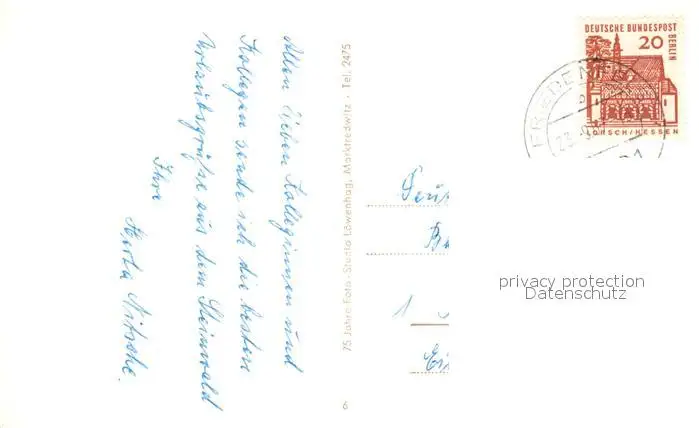 Allen lieben Kolleginnen und
Kollegen sende ich die besten
Urlaubsgrüße aus dem Steinwald
Ihre
Herta Nitsche.
75 Jahre Foto-Stanta Löwenhag, Marktredwitz · Tel. 2475
6
DEUTSCHE BUNDESPOST
BERLIN
20
LORSCH/HESSEN
1
privacy protection
Datenschutz